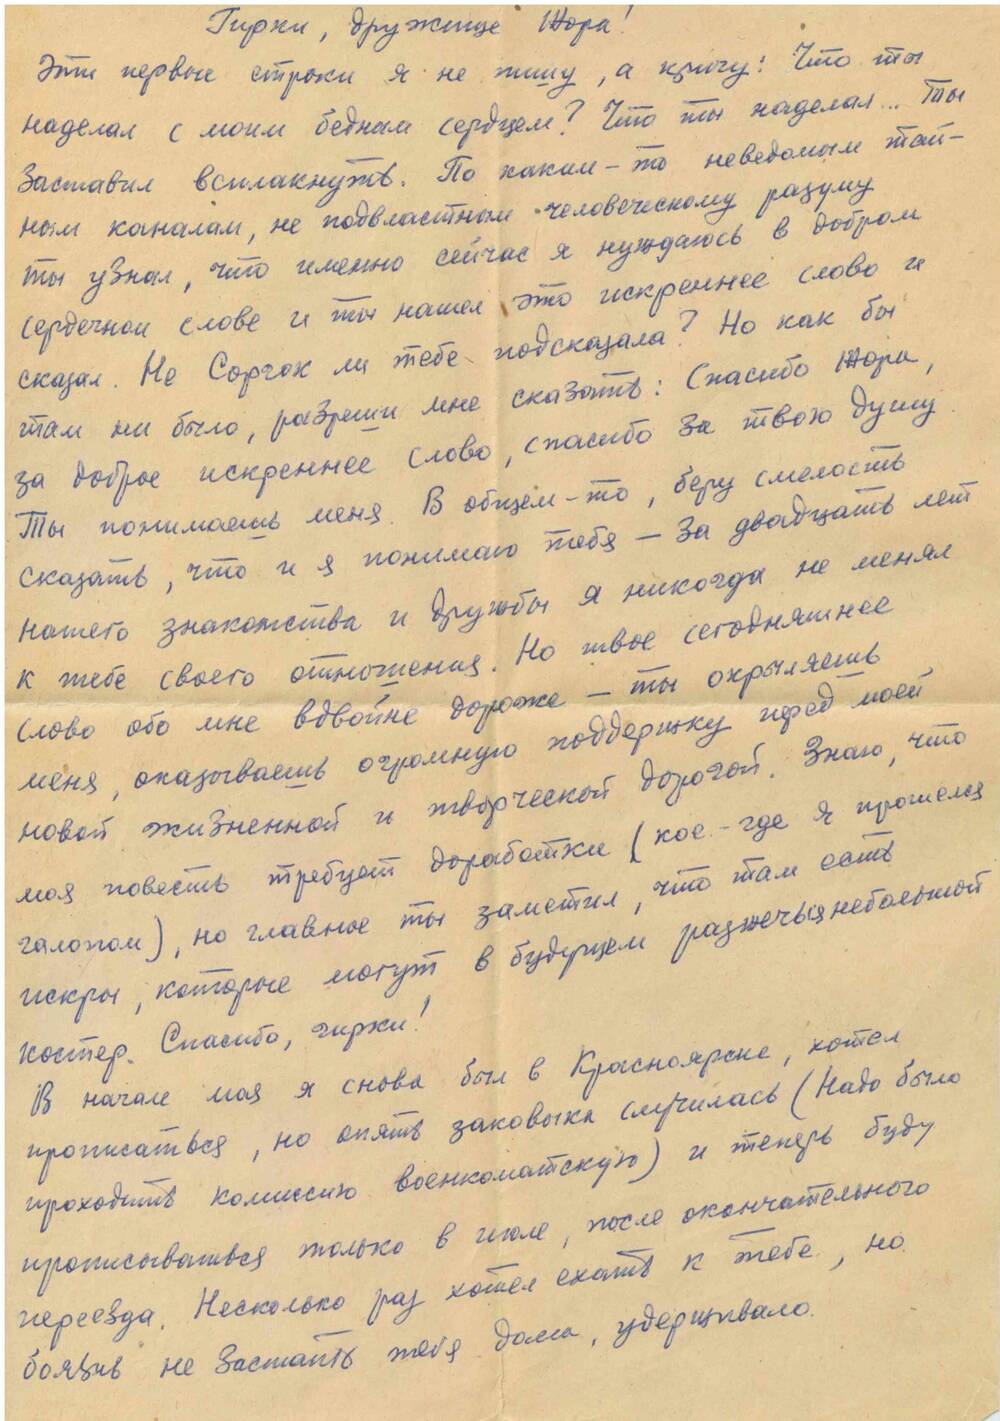 Гирки, дружище Жора!
Эти первые строки я не пишу, а кричу: Что ты
наделал с моим бедным сердцем? Что ты наделал... Ты
заставил всплакнуть. По каким-то неведомым тай-
ным каналам, не подвластным человеческому разуму
ты узнал, что именно сейчас я нуждаюсь в добром
сердечном слове и ты нашел это искреннее слово и
сказал. Не Сорчок ли тебе подсказала? Но как бы
там ни было, разреши мне сказать: Спасибо Жора,
за доброе искреннее слово, спасибо за твою душу.
Ты понимаешь меня. В общем-то, беру смелость
сказать, что и я понимаю тебя – за двадцать лет
нашего знакомства и дружбы я никогда не менял
к тебе своего отношения. Но твое сегодняшнее
слово обо мне вдвойне дороже – ты окрыляешь
меня, оказываешь огромную поддержку перед моей
новой жизненной и творческой дорогой. Знаю, что
моя повесть требует доработки (кое-где я прошелся
галопом), но главное ты заметил, что там есть
искры, которые могут в будущем разжечь небольшой
костер. Спасибо, гирки!
В начале мая я снова был в Красноярске, хотел
прописаться, но опять заковыка случилась (Надо было
проходить комиссию военкоматскую) и теперь буду
прописываться только в июле, после окончательного
переезда. Несколько раз хотел ехать к тебе, но
боязнь не застать тебя дома, удерживало.